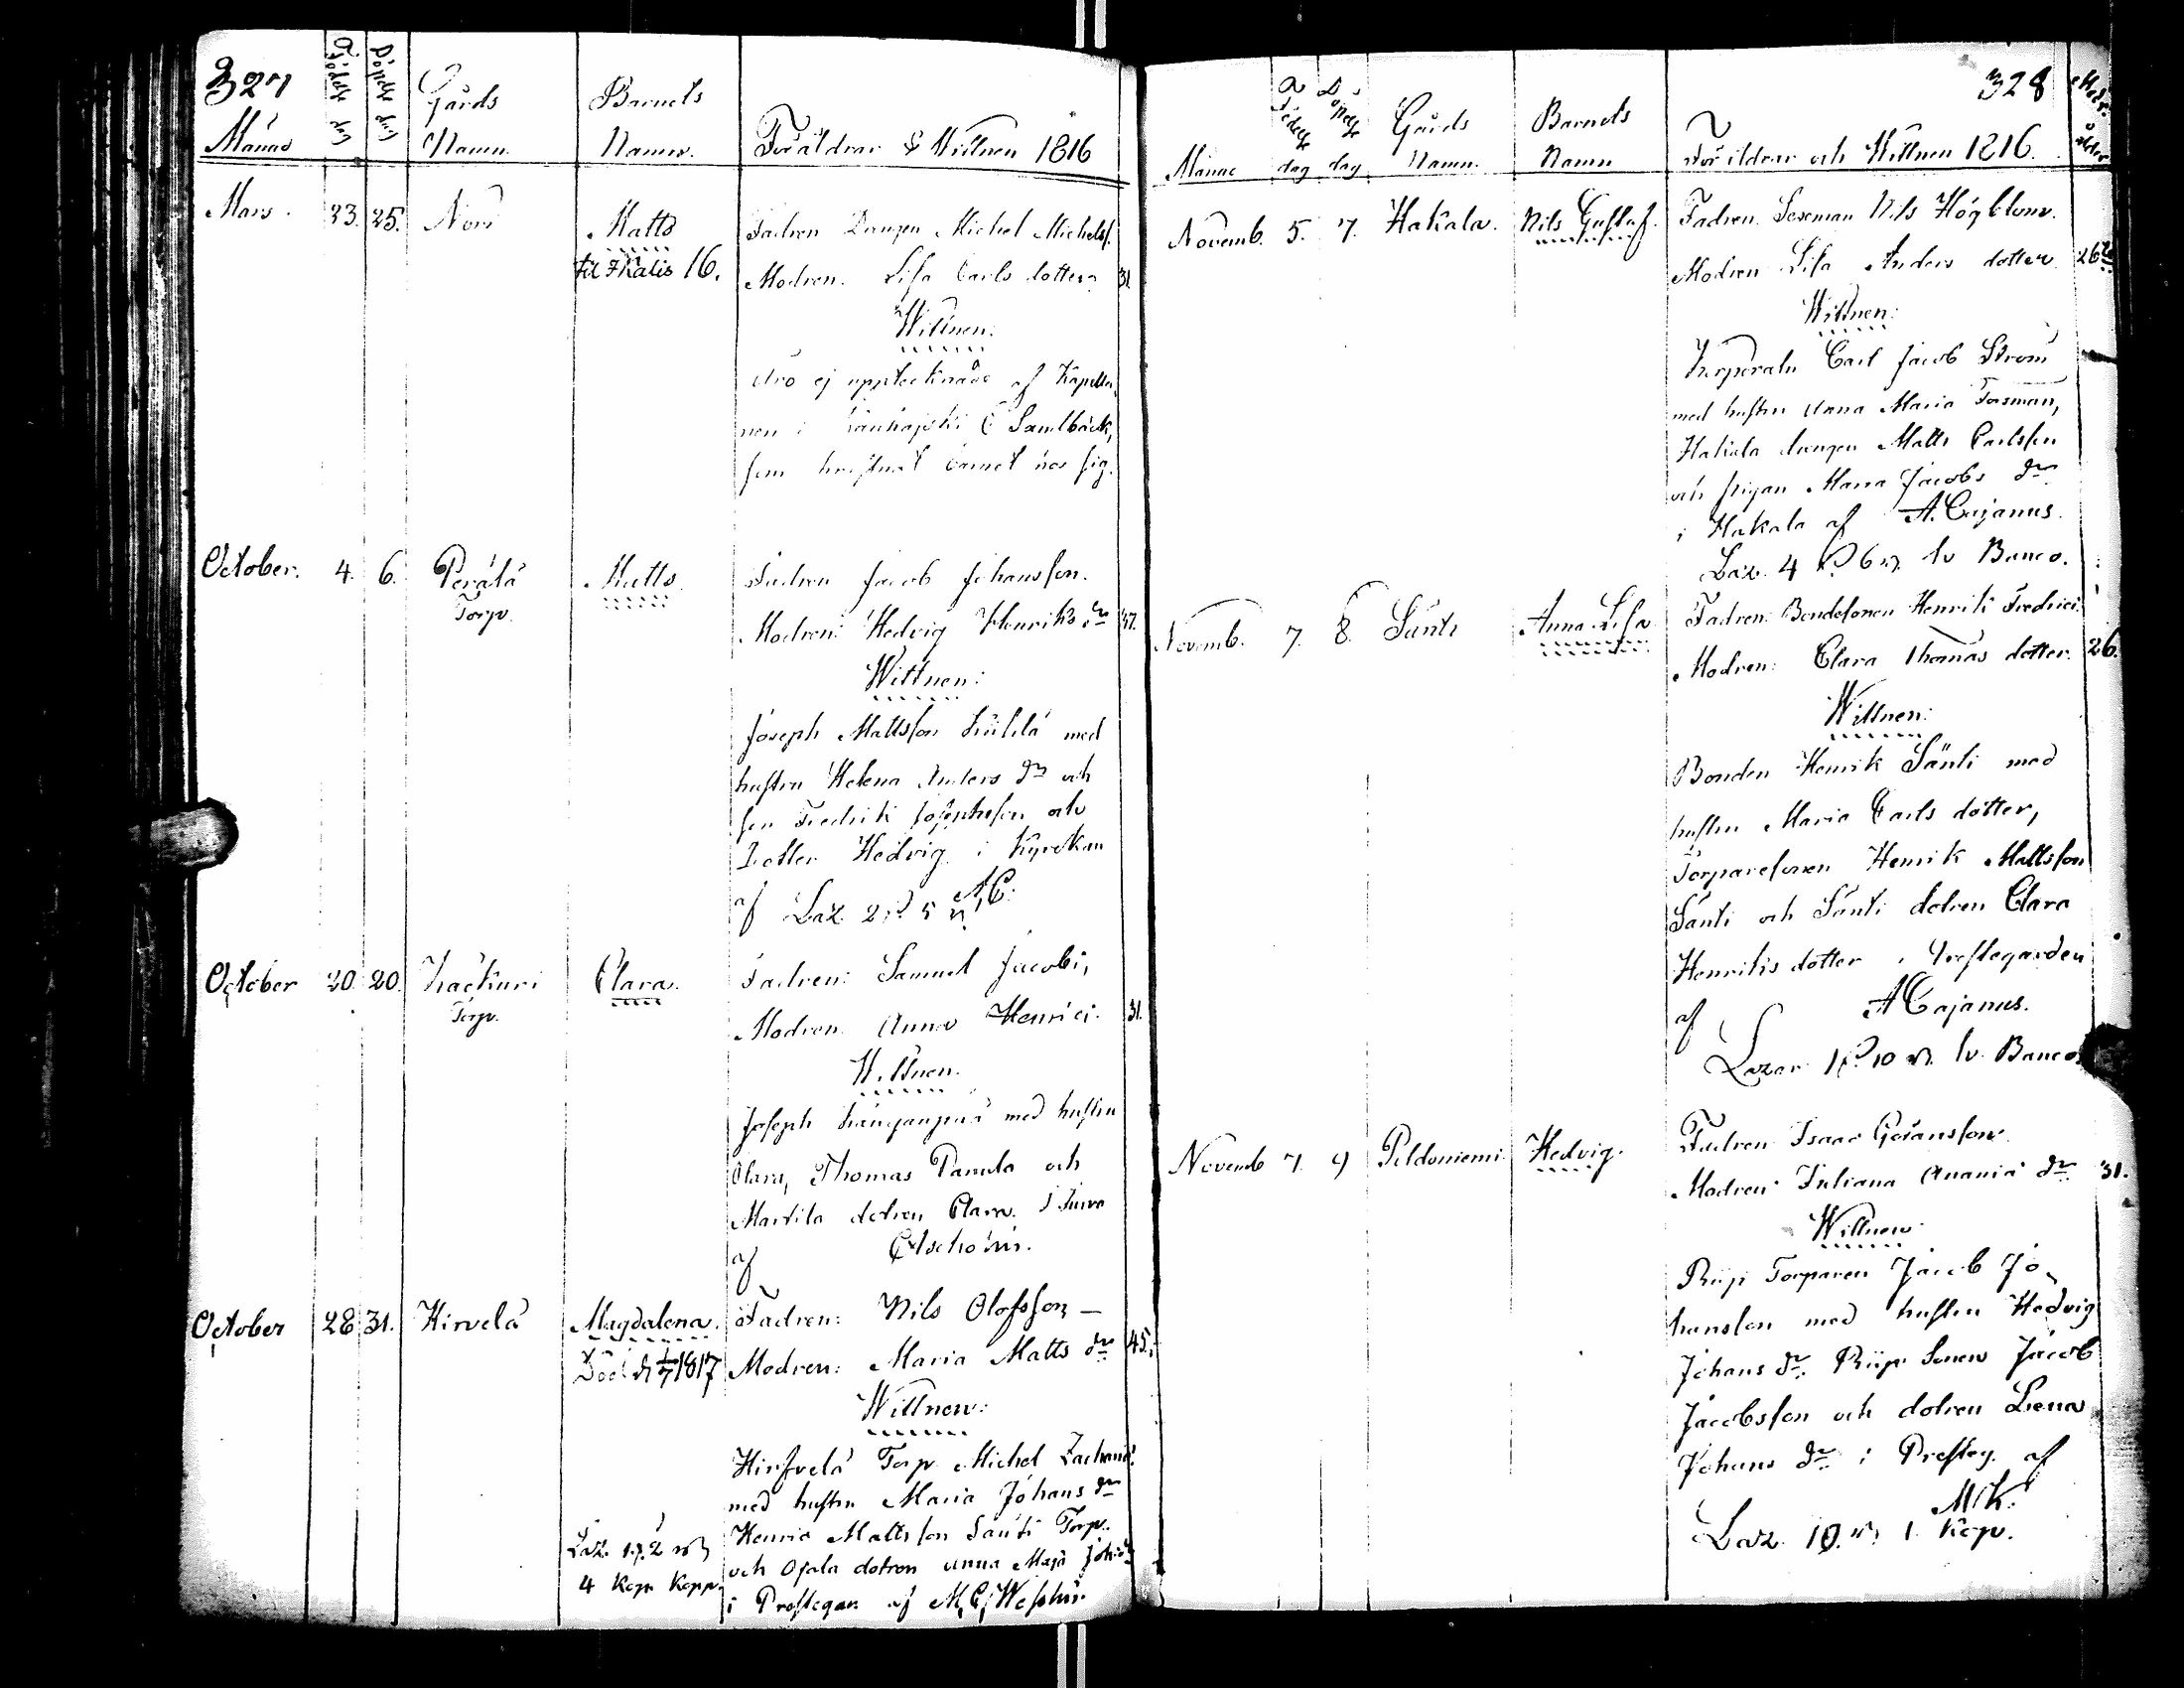 327
Månad
Födelse dag
Döpelse dag
Gårds
Namn.
Barnets
Namn.
Föräldrar & Wittnen 1816
Mars. 23. 25.
Matts
til Kalis 16.
Fadren Drängen Michel Michelss.
Modren. Lisa Carls dotter 31
Wittnen:
äro ej upptecknade af Kapella-
nen i Kauhajoki C Sandbäck,
som christnat barnet hos sig.
October. 4. 6. Perälä
Torp.
Matts
Fadren Jacob Johansson.
Modren: Hedvig Henriks dr 37.
Wittnen:
Joseph Mattsson med
hustru Helena Anders dr och
son Fredrik Josephsson och
Dotter Hedvig i Kyrckan
af A C:
Laz. 2 5
October 20. 20.
Torp.
Clara.
Fadren: Samuel Jacobi,
Modren. Anna Henrici. 31.
Wittnen.
Joseph med hustru
Clara, Thomas Panula och
Martila dotren Clara. i Jurva
af
October 28 31. Hirvelä
Magdalena.
Död d 1/7 1817
Fadren: Nils Olofsson —
Modren: Maria Matts dr 45.
Wittnen:
Hirfvelä Torp. Michel Zachariæ
med hustru Maria Johans dr
Henric Mattsson Sänti Torp.
och Ojala dotren Anna Maja
i Prestegår. af
Laz. 2
4 Kop. Kopp.
328
Månad
Födelse
dag
Döpelse
dag
Gårds
Namn.
Barnets
Namn
Föräldrar och Wittnen 1816.
Modr. ålder
Novemb. 5. 7. Hakala. Nils Gustaf.
Fadren. Nils Högblom.
Modren Lisa Anders dotter 26
Wittnen:
Korporaln Carl Jacob Ström
med hustru Anna Maria Forsman,
Hakala drengen Matts Carlsson
och pigan Maria Jacobs dr
i Hakala af A. Cajanus.
Laz. 4 6 Banco.
Novemb. 7. 8. Sänti Anna Lisa
Fadren: Bondesonen Henrik Fredrici.
Modren: Clara Thomas dotter. 26.
Wittnen:
Bonden Henrik Sänti med
hustru Maria Carls dotter,
Torparesonen Henrik Mattsson
Sänti och Sänti dotren Clara
Henriks dotter i Prestegården
af A Cajanus.
Lazar 1 10 Banco
Novemb 7. 9 Peldoniemi Hedvig.
Fadren Isaac Göransson
Modren Juliana Ananiæ dr 31.
Wittnen
Riipi Torparen Jacob Jo-
hansson med hustru Hedvig
Johans dr. Riipi Sonen Jacob
Jacobsson och dotren Lena
Johans dr i Presteg. af
M K.
Laz. 10. 1 Kop.